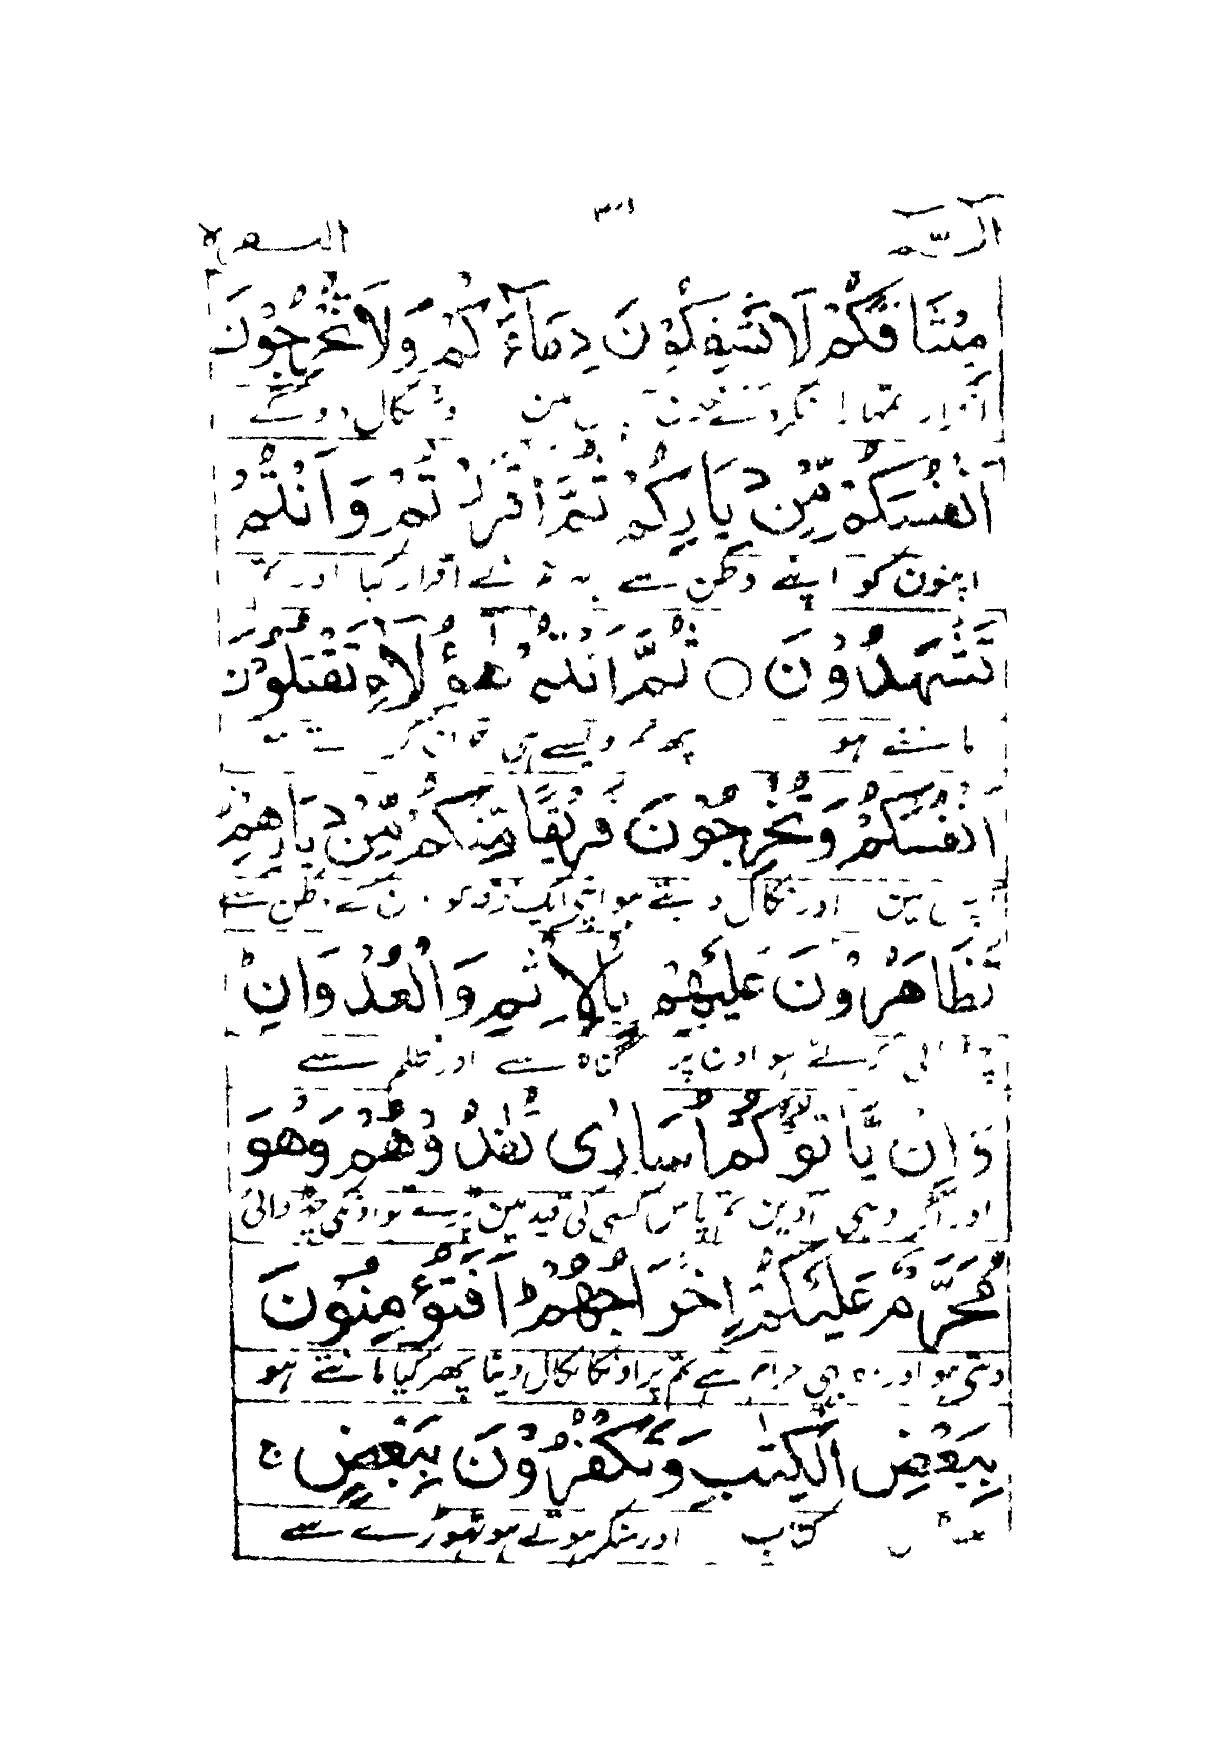 مِيْثَاقَكُمْ لَا تَسْفِكُوْنَ دِمَآءَكُمْ وَلَا تُخْرِجُوْنَ
نکال دو گے
اَنْفُسَكُمْ مِّنْ دِيَارِكُمْ ثُمَّ اَقْرَرْتُمْ وَاَنْتُمْ
اپنون کو اپنے وطن سے پھر تمنے اقرار کیا اور تم
تَشْهَدُوْنَ ○ ثُمَّ اَنْتُمْ هٰٓؤُلَآءِ تَقْتُلُوْنَ
مانتے ہو پھر تم ویسے ہی
اَنْفُسَكُمْ وَتُخْرِجُوْنَ فَرِيْقًا مِّنْكُمْ مِّنْ دِيَارِهِمْ
آپس مین اور نکال دیتے ہو اپنی ایک فرقہ کو اون کے وطن سے
تَظَاهَرُوْنَ عَلَيْهِمْ بِالْاِثْمِ وَالْعُدْوَانِ ط
چڑھائی کرتے ہو اون پر گناہ سے اور ظلم سے
وَاِنْ يَّاْتُوْكُمْ اُسَارٰى تُفٰدُوْهُمْ وَهُوَ
اور اگر وہی آوین تم پاس کسی کی قید مین پڑے تو اونکی چھڑوائی
مُحَرَّمٌ عَلَيْكُمْ اِخْرَاجُهُمْ ط اَفَتُؤْمِنُوْنَ
دیتی ہو اور وہ بھی حرام ہے تم پر اونکا نکال دینا پھر کیا مانتے ہو
بِبَعْضِ الْكِتٰبِ وَتَكْفُرُوْنَ بِبَعْضٍ ج
کتاب اور منکر ہوتے ہو تھوڑے سے